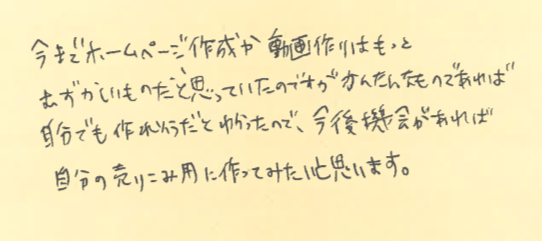 今までホームページ作成や動画作りはもっと
むずかしいものだと思っていたのですがかんたんなものであれば
自分でも作れそうだとわかったので、今後機会があれば
自分の売りこみ用に作ってみたいと思います。